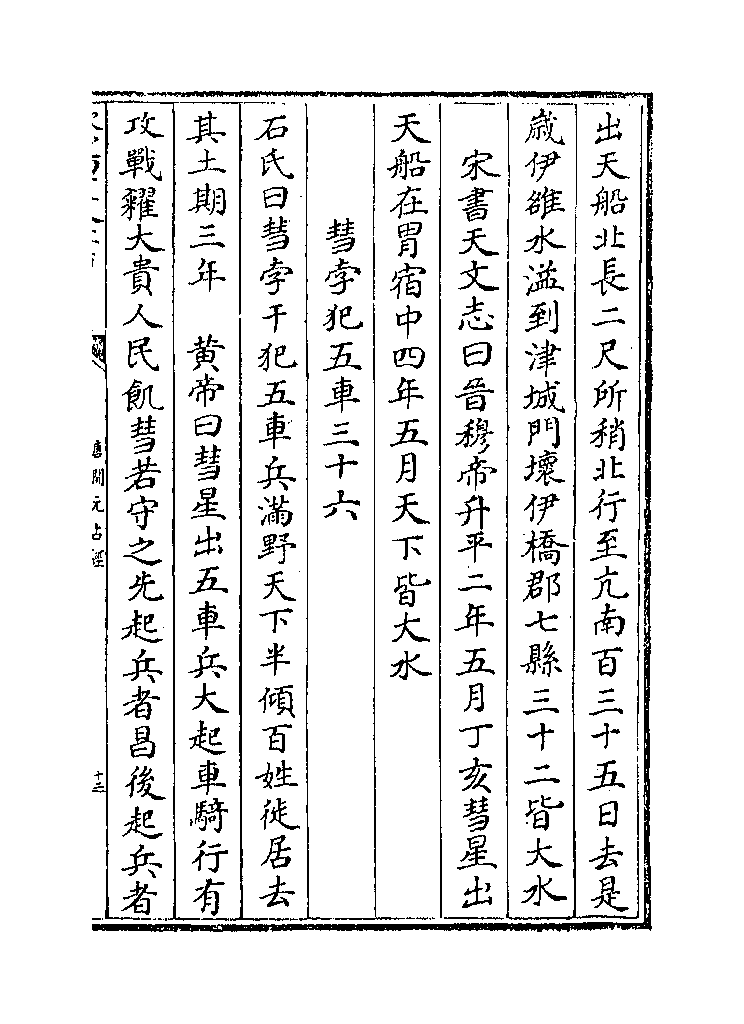 出天船北長二尺所稍北行至亢南百三十五日去是
歳伊雒水溢到津城門壞伊橋郡七縣三十二皆大水
宋書天文志曰晉穆帝升平二年五月丁亥彗星出
天船在胃宿中四年五月天下皆大水
彗孛犯五車三十六
石氏曰彗孛干犯五車兵滿野天下半傾百姓徙居去
其土期三年　黄帝曰彗星出五車兵大起車騎行有
攻戰糴大貴人民飢彗若守之先起兵者昌後起兵者
唐開元占經
十三